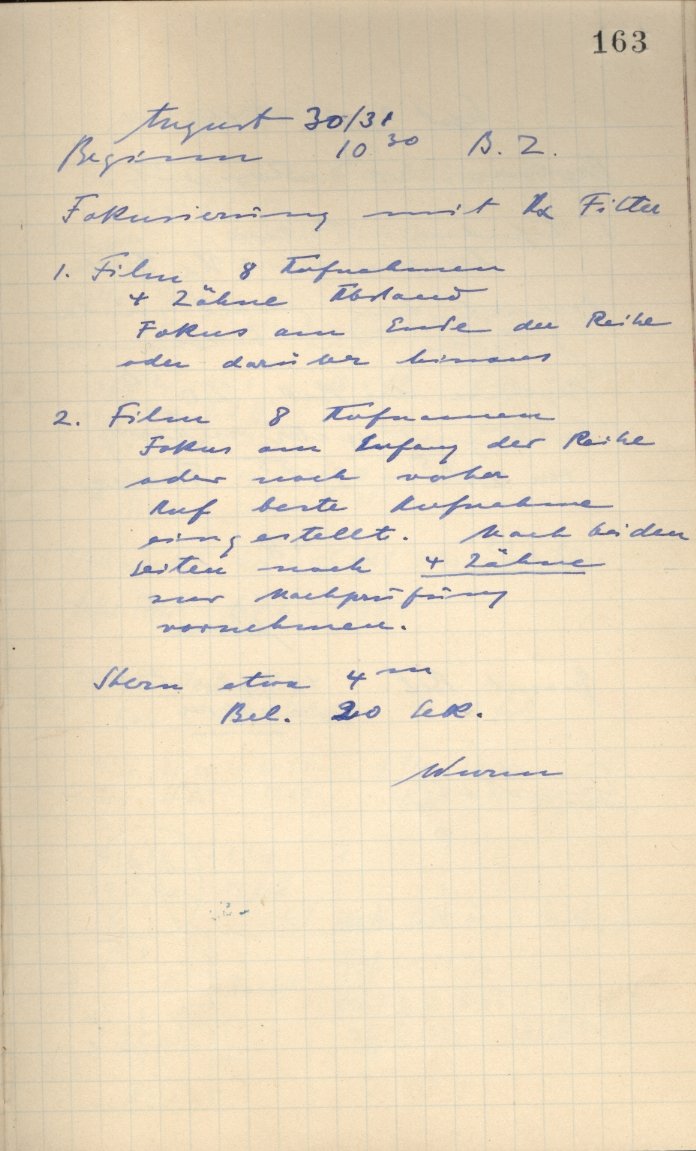 163
August 30/31
Beginn 10 30 B. Z.
Fokusierung mit Hα Filter
1. Film 8 Aufnahmen
4 Zähne Abstand
Fokus am Ende der Reihe
oder darüber hinaus
2. Film 8 Aufnamen
Fokus am Anfang der Reihe
oder noch vorher
Auf beste Aufnahme
eingestellt. Nach beiden
Seiten noch 4 Zähne
zur Nachprüfung
vornehmen.
Stern etwa 4 m
Bel. 20 Sek.
Wurm